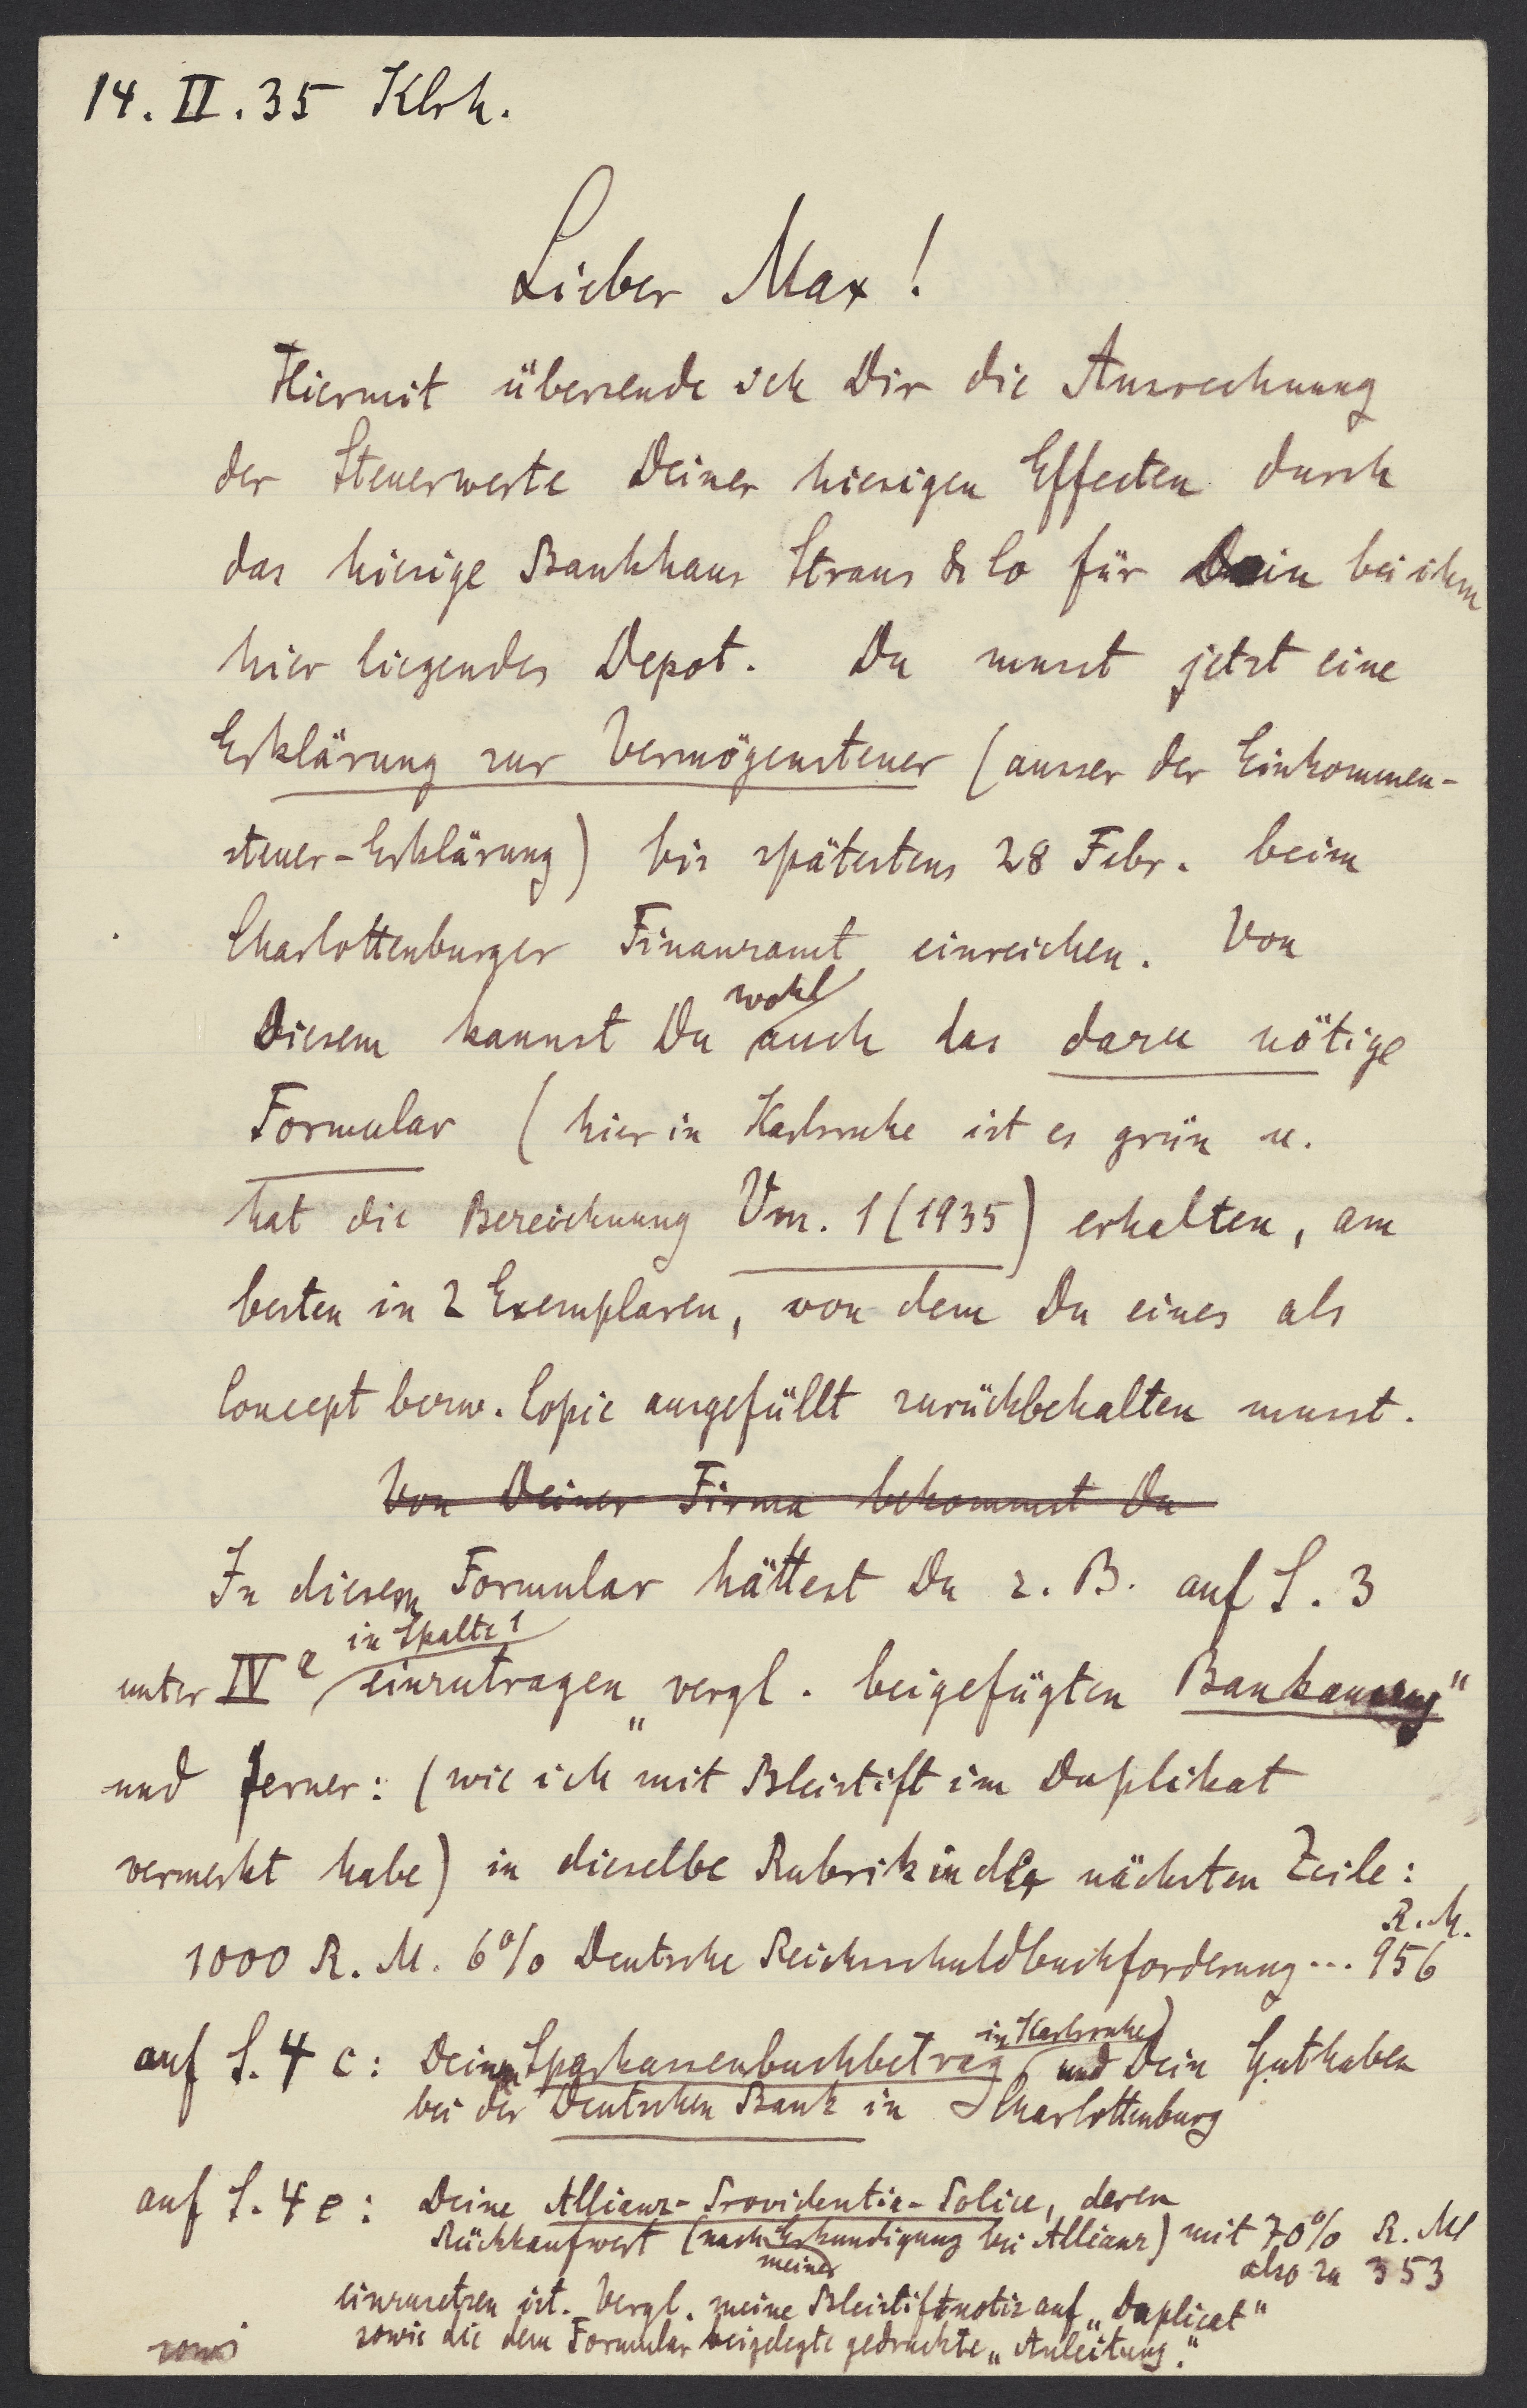 14. II. 35 Klrh.
Lieber Max!
Hiermit übersende ich Dir die Ausrechnung
der Steuerwerte Deiner hiesigen Effecten durch
das hiesige Bankhaus Straus & Co für Dein bei ihm
hier liegendes Depot. Du musst jetzt eine
Erklärung zur Vermögensteuer (ausser der Einkommen-
steuer-Erklärung) bis spätestens 28 Febr. beim
Charlottenburger Finanzamt einreichen. Von
wohl
Diesem kannst Du auch das dazu nötige
Formular (hier in Karlsruhe ist es grün u.
hat die Bezeichnung Vm. 1 (1935) erhalten, am
besten in 2 Exemplaren, von dem Du eines als
Concept bezw. Copie ausgefüllt zurückbehalten musst.
Von Deiner Firma bekommst Du
In diesem Formular hättest Du z. B. auf S. 3
in Spalte 1
unter IV e einzutragen „vergl. beigefügten Bankauszug"
und ferner: (wie ich mit Bleistift im Duplikat
vermerkt habe) in dieselbe Rubrik in der nächsten Zeile:
R. M.
1000 R. M. 6% Deutsche Reichsschuldbuchforderung ... 956
in Karlsruhe)
auf S. 4 c: Deinen Sparkassenbuchbetrag und Dein Guthaben
bei der Deutschen Bank in Charlottenburg
auf S. 4 e: Deine Allianz-Providentia-Police, deren
Rückkaufwert (nach Erkundigung bei Allianz) mit 70% R. M
meiner
also zu 353
einzusetzen ist. Vergl. meine Bleistiftnotiz auf „Duplicat"
sowie die dem Formular beigelegte gedruckte „Anleitung."
sowi